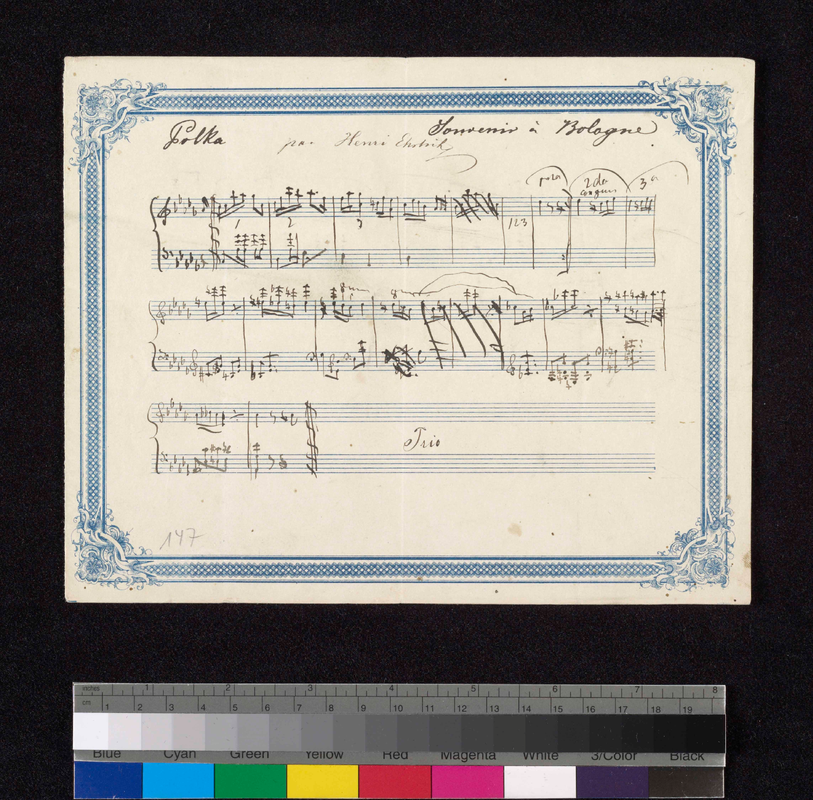 Polka par Henri Souvenir à Bologne
1 2 3 123 2da 3a
Trio
147
inches 1 2 3 4 5 6 7 8
cm 1 2 3 4 5 6 7 8 9 10 11 12 13 14 15 16 17 18 19
Blue Cyan Green Yellow Red Magenta White 3/Color Black